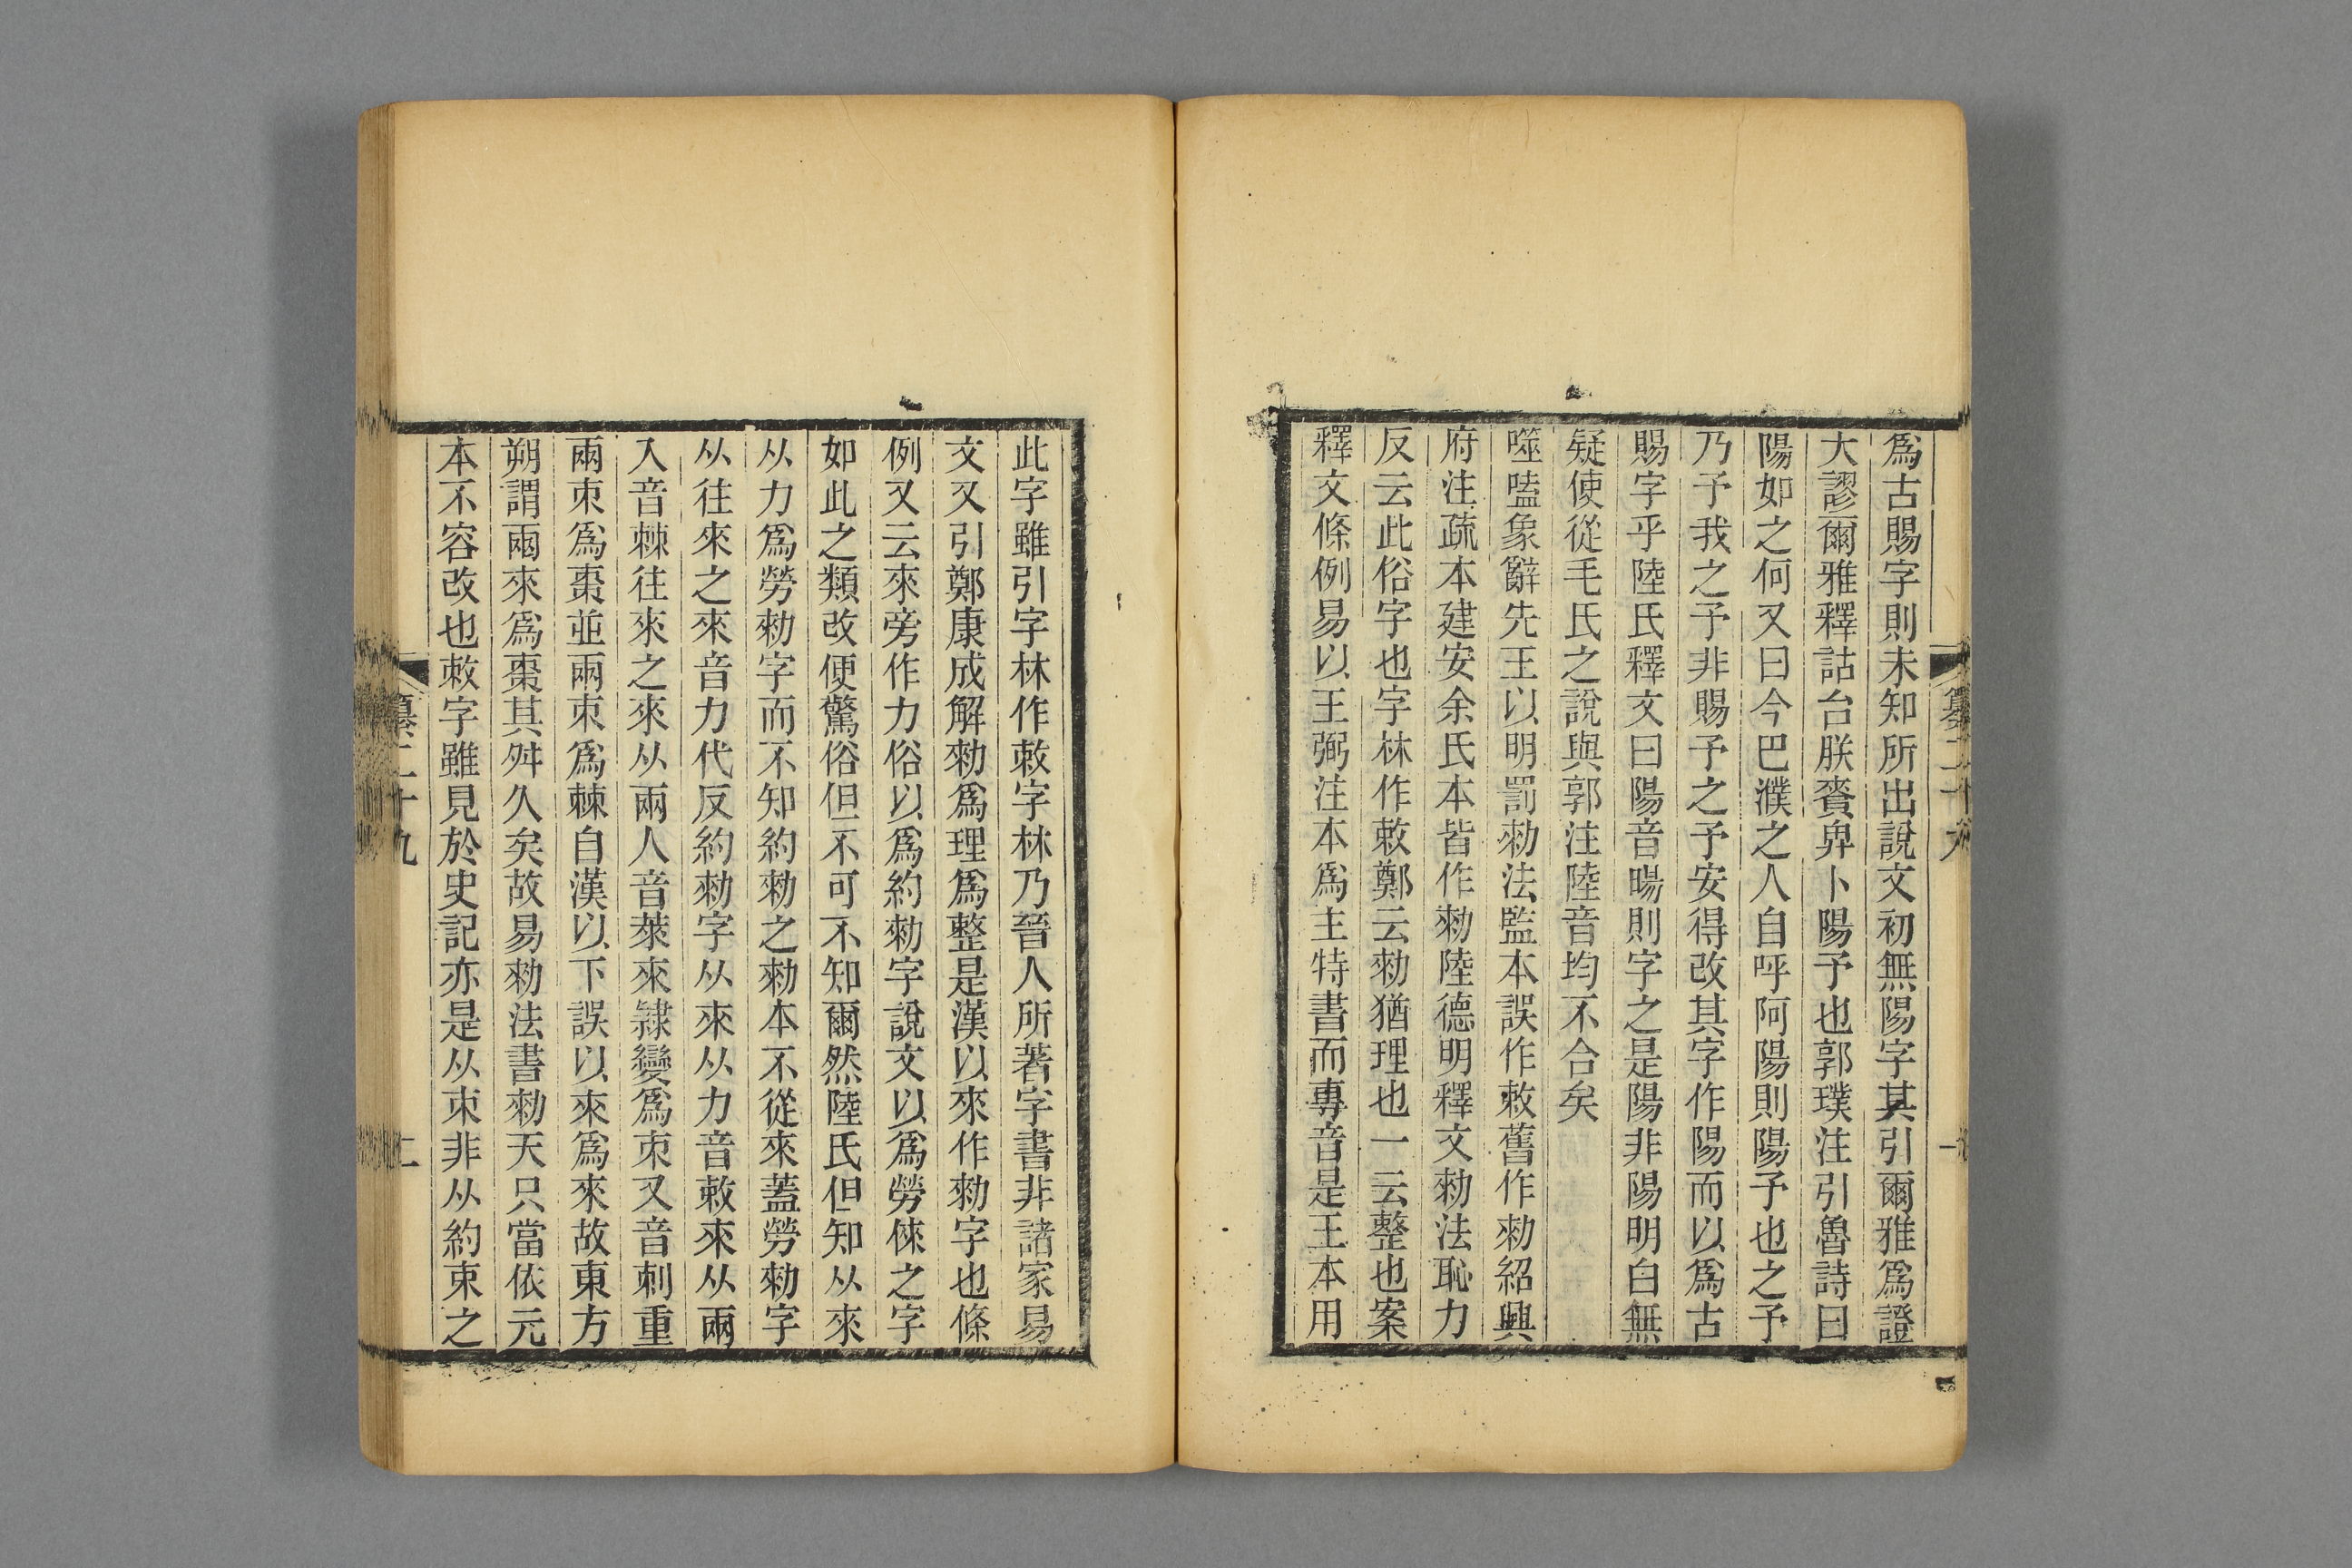 爲古賜字則未知所出說文初無陽字其引爾雅爲證
大謬爾雅釋詁台朕賚畀卜陽予也郭璞注引魯詩曰
陽如之何又曰今巴濮之人自呼阿陽則陽予也之予
乃予我之予非賜予之予安得改其字作陽而以爲古
賜字乎陸氏釋文曰陽音暘則字之是陽非陽明白無
疑使從毛氏之說與郭注陸音均不合矣
噬嗑象辭先王以明罰勑法監本誤作敕舊作勑紹興
府注疏本建安余氏本皆作勑陸德明釋文勑法恥力
反云此俗字也字林作敕鄭云勑猶理也一云整也案
釋文條例易以王弼注本爲主特書而專音是王本用
此字雖引字林作敕字林乃晉人所著字書非諸家易
文又引鄭康成解勑爲理爲整是漢以來作勑字也條
例又云來旁作力俗以爲約勑字說文以爲勞倈之字
如此之類改便驚俗但不可不知爾然陸氏但知从來
从力爲勞勑字而不知約勑之勑本不從來蓋勞勑字
从往來之來音力代反約勑字从來从力音敕來从兩
入音棘往來之來从兩人音萊來隸變爲朿又音刺重
兩朿爲棗並兩朿爲棘自漢以下誤以來爲來故東方
朔謂兩來爲棗其舛久矣故易勑法書勑天只當依元
本不容改也敕字雖見於史記亦是从朿非从約束之
纂二十九
二